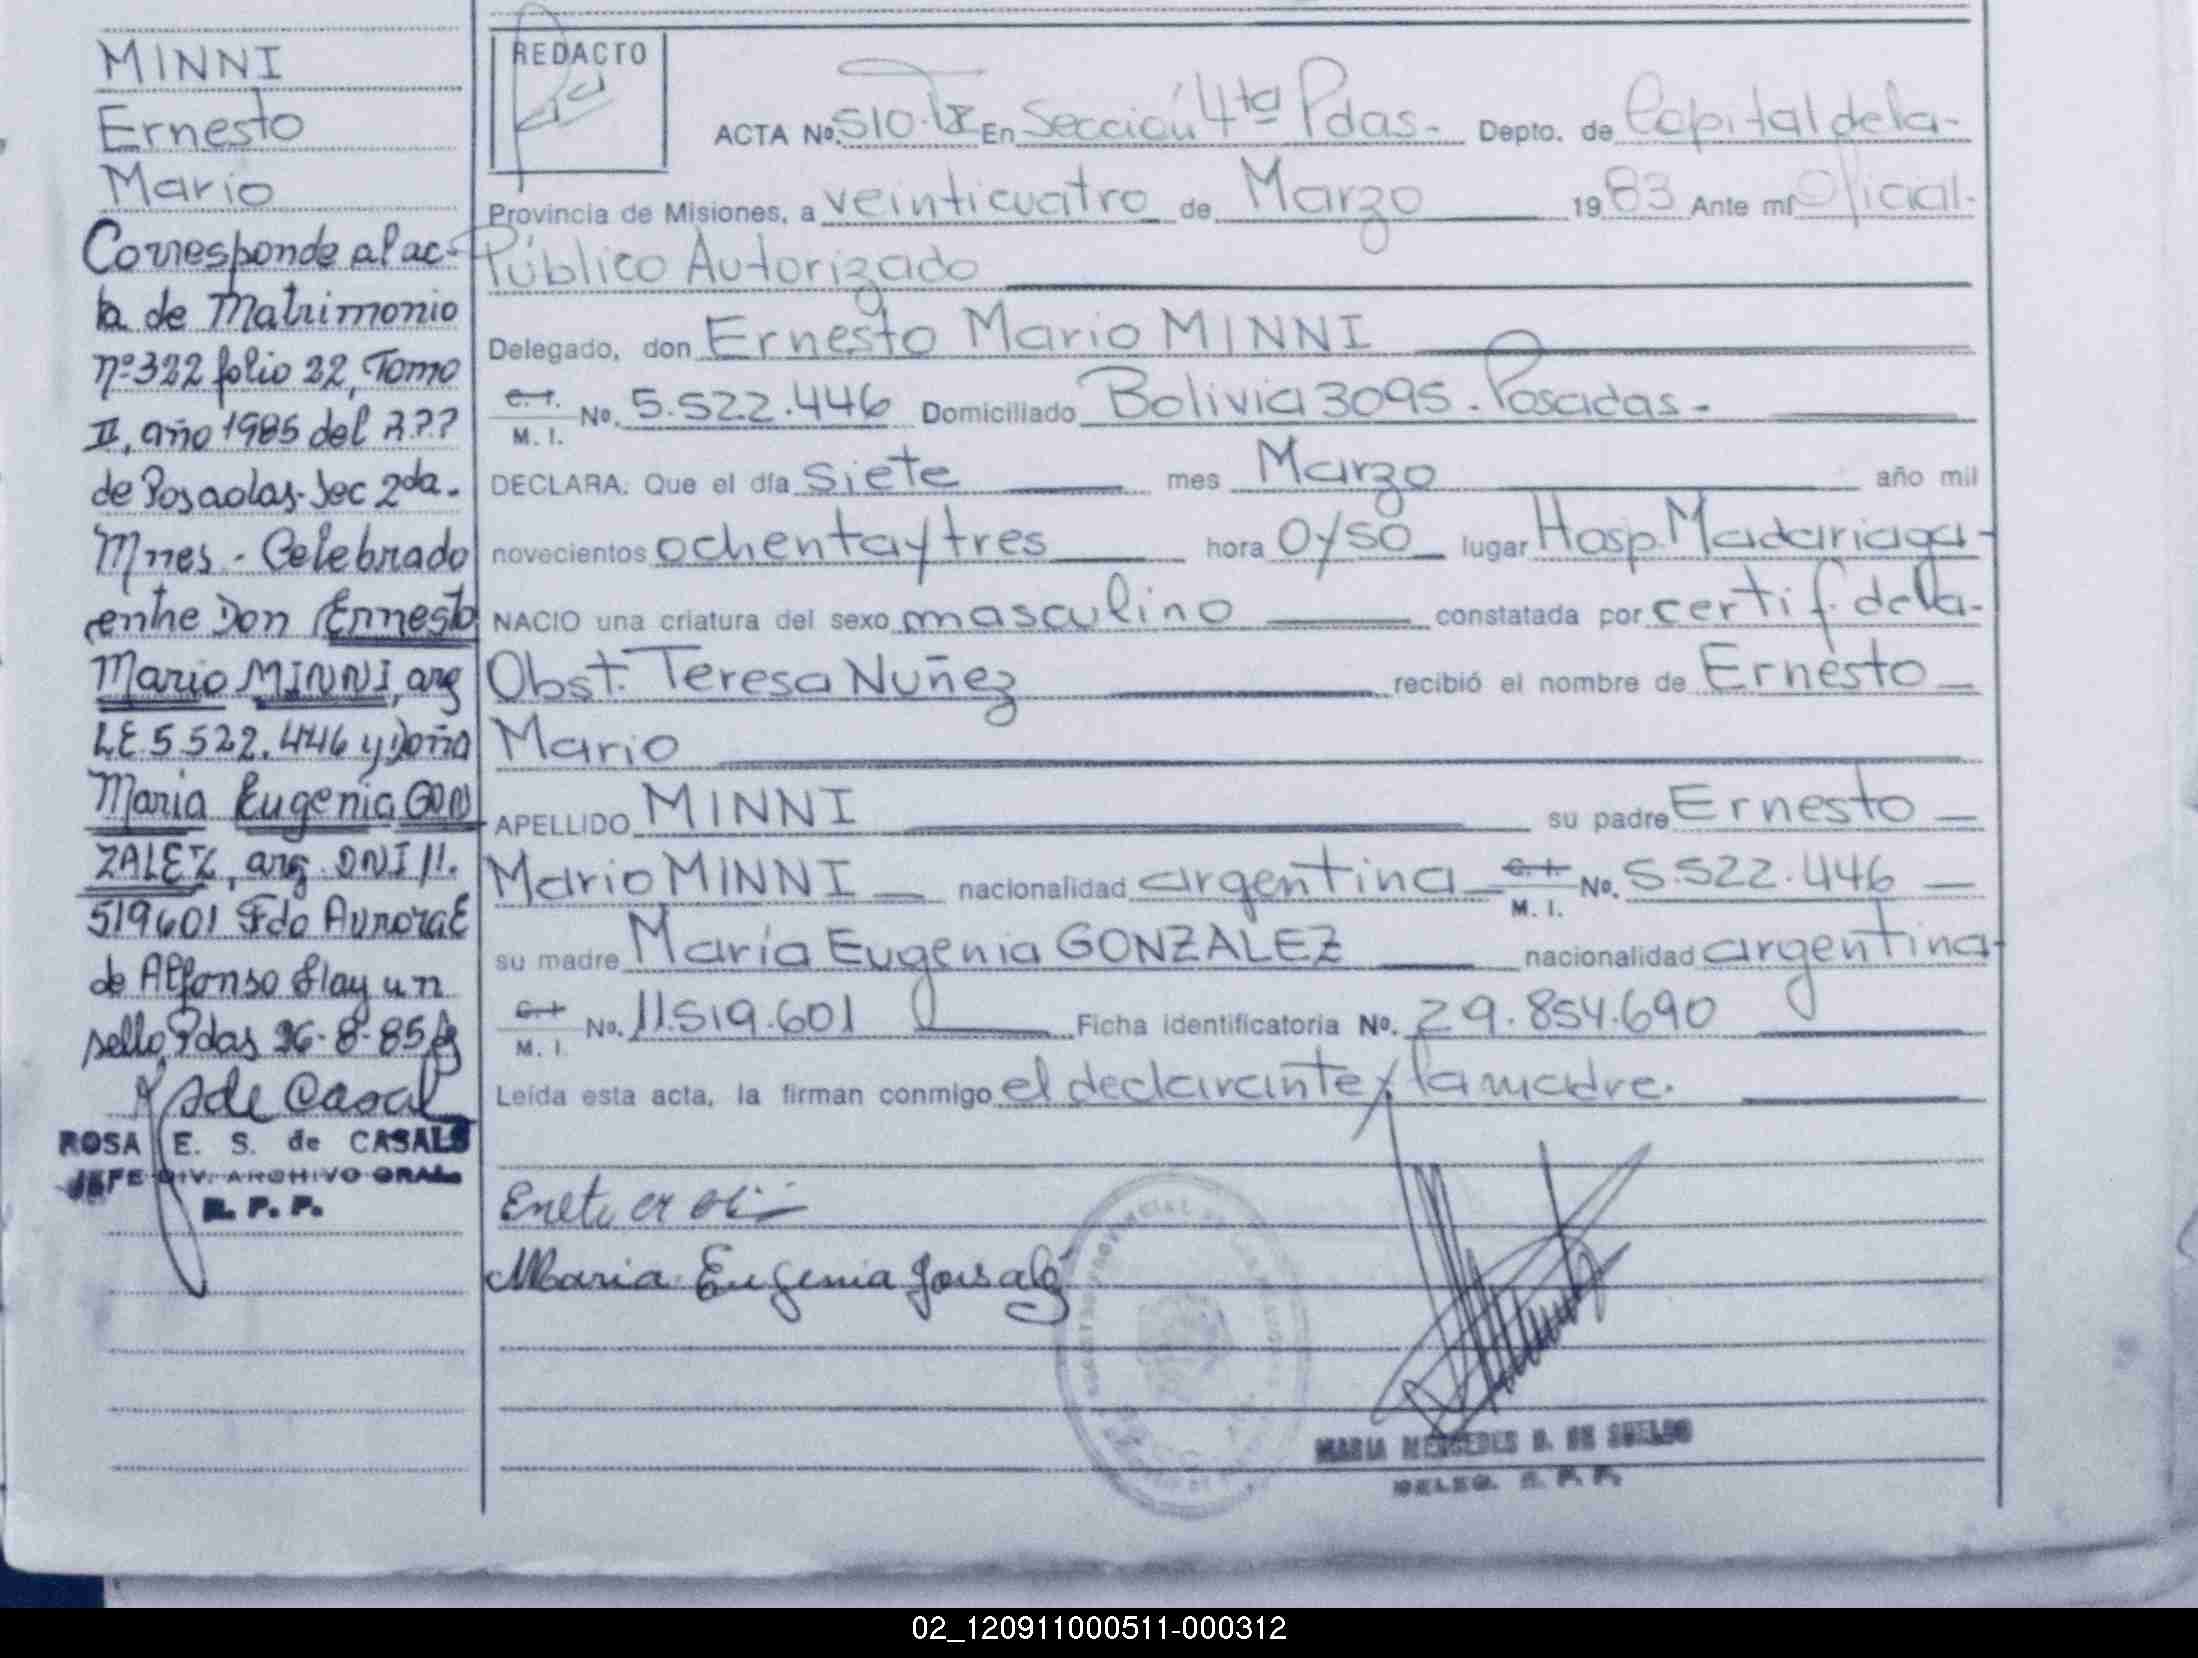 MINNI
Ernesto
Mario
Corresponde al ac-
ta de Matrimonio
nº 322 folio 22, Tomo
II, año 1985 del R.P.P
de Posadas-Sec 2da.
Mnes - Celebrado
entre Don Ernesto
Mario MINNI, arg
LE 5.522.446 y Doña
Maria Eugenia GON
ZALEZ, arg. DNI 11.
519601 Fdo Aurora E
de Alfonso Hay un
sello, Pdas 26-8-85
de Casal
ROSA E. S. de CASALS
JEFE DIV. ARCHIVO GRAL.
R. P. P.
REDACTO
ACTA Nº 510 En Sección 4ta Pdas- Depto. de Capital de la-
Provincia de Misiones, a veinticuatro de Marzo 1983 Ante mí Oficial-
Público Autorizado
Delegado, don Ernesto Mario MINNI
C. I. M. I. No. 5.522.446 Domiciliado Bolivia 3095.- Posadas-
DECLARA: Que el día siete mes Marzo año mil
novecientos ochenta y tres hora 0y50 lugar Hosp. Madariaga-
NACIO una criatura del sexo masculino constatada por certif. de la-
Obst. Teresa Nuñez recibió el nombre de Ernesto
Mario
APELLIDO MINNI su padre Ernesto
Mario MINNI nacionalidad argentina C. I. M. I. No. 5.522.446
su madre María Eugenia GONZALEZ nacionalidad argentina
C. I. M. I. No. 11.519.601 Ficha identificatoria No. 29.854.690
Leída esta acta, la firman conmigo el declarante y la madre.
Maria Eugenia Gonsalez
MARIA MERCEDES B. DE SUELDO
DELEG. R. P. P.
02_120911000511-000312